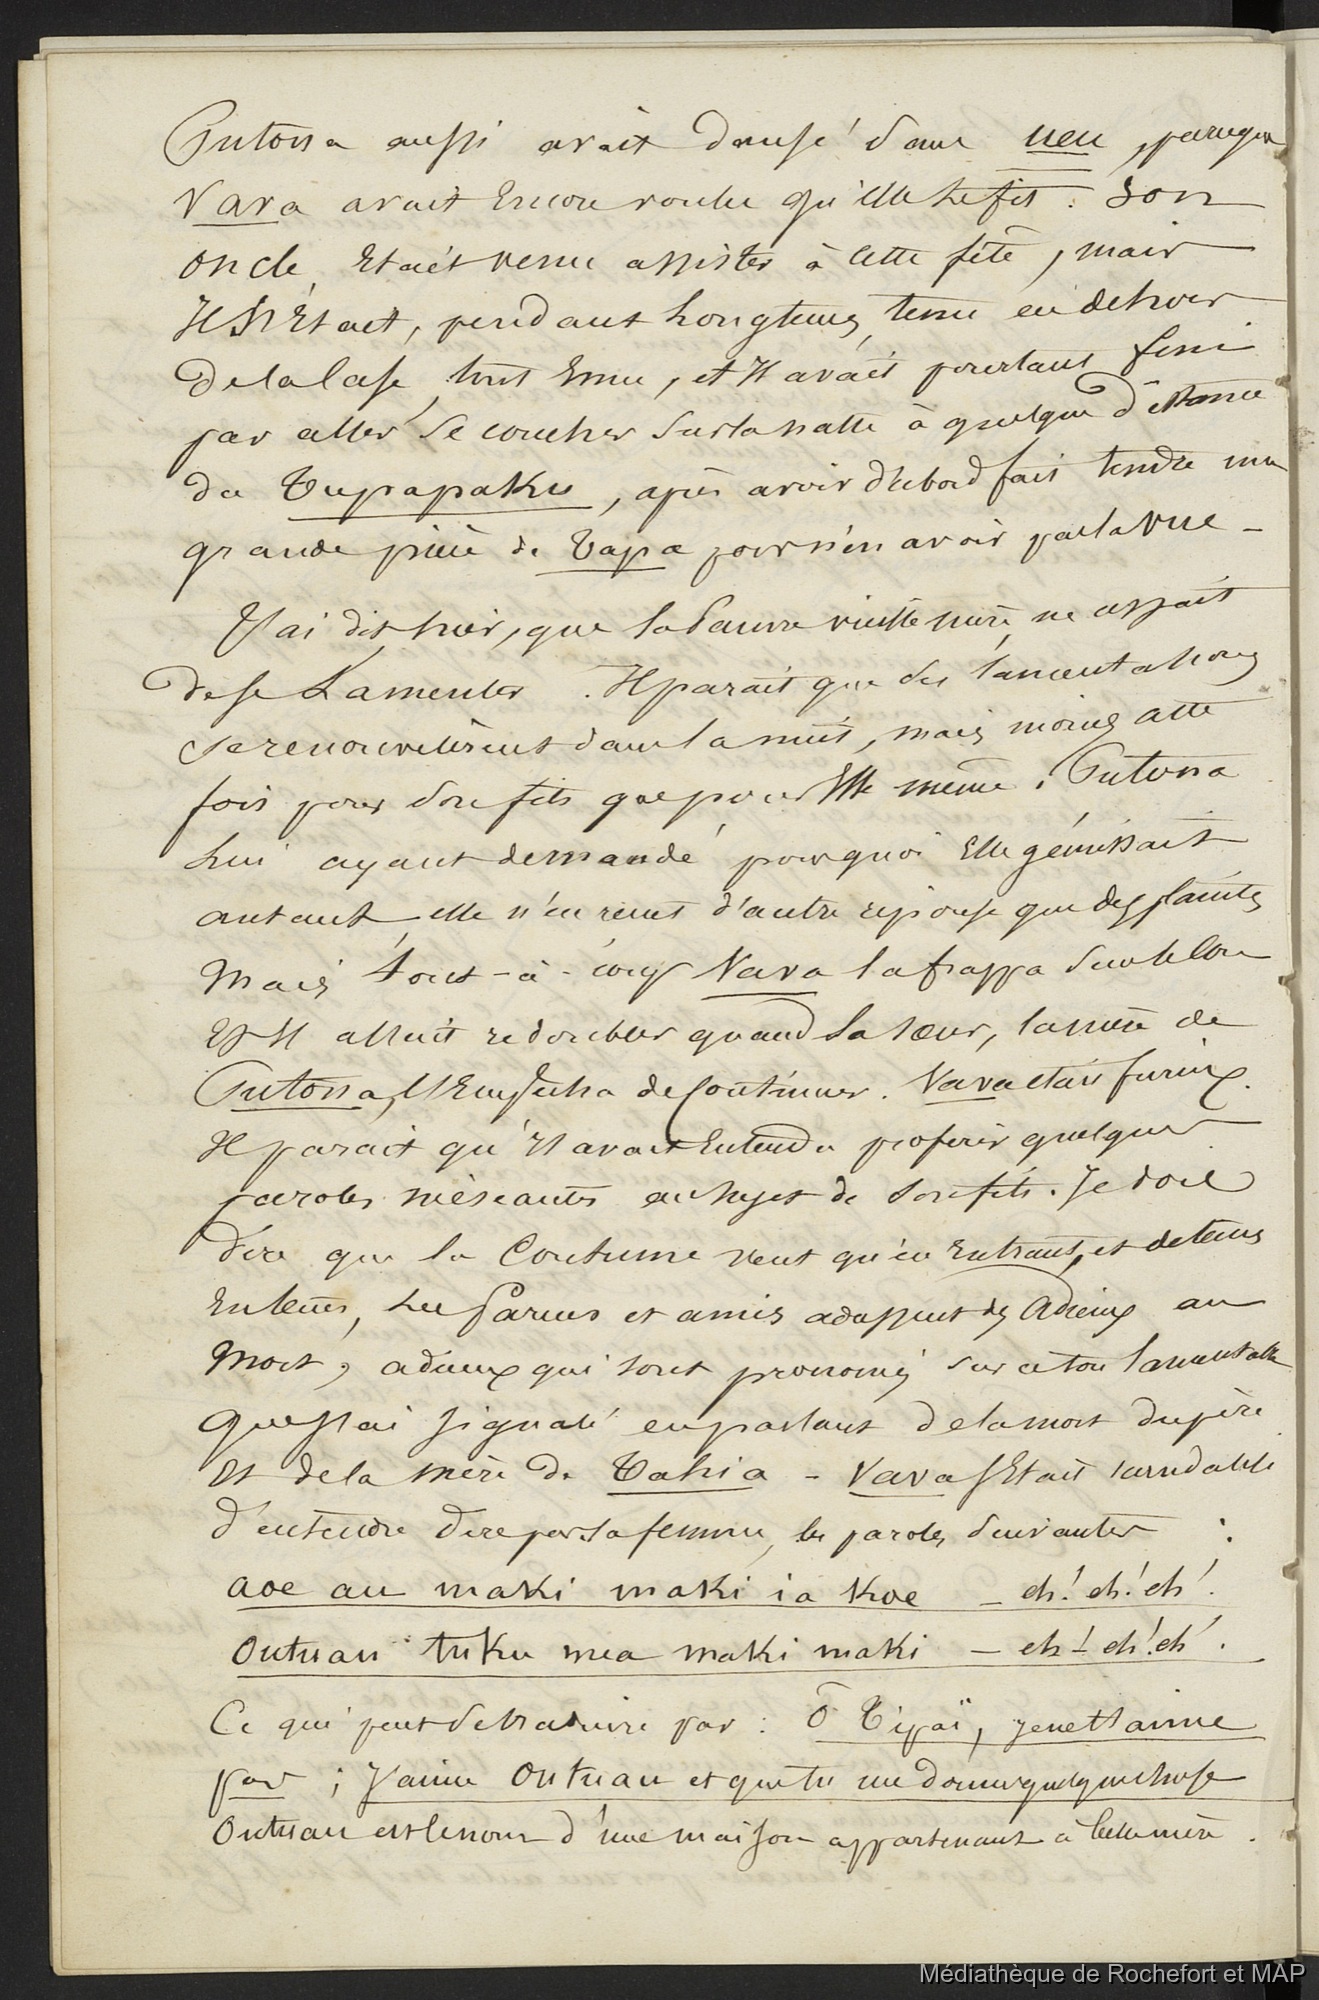 Putona aussi avait dansé dans ueu, parceque
Vava avait encore voulu qu'elle le fit. Son
oncle, était venu assister à cette fête, mais
Il s'était, pendant longtems, tenu en dehors
de la case, tout ému, et Il avait pourtant fini
par aller se coucher sur la natte à quelque distance
du Tupapaku, après avoir d'abord fait tendre une
grande pièce de Tapa pour n'en avoir pas la vue –
J'ai dit, hier, que la pauvre vieille mère, ne cessait
de se Lamenter. Il parait que des lamentations
se renouvelèrent dans la nuit, mais moins cette
fois pour son fils que pour Elle même. Putona
lui ayant demandé pourquoi Elle gémissait
autant, elle n'en reçut d'autre réponse que des plaintes
Mais tout-à-coup Vava la frappa sur le cou
Et Il allait redoubler quand la sœur, la mère de
Putona, l'Empêcha de Continuer. Vava était furieux.
Il parait qu'Il avait Entendu proférer quelques
paroles méséantes au sujet de son fils. Je dois
dire que la Coutume veut qu'en Entrant, et de tems
En tems, les Parens et amis adressent des Adieux au
Mort, adieux qui sont prononcés sur ce ton lamentable
Que J'ai signalé en parlant de la mort du père
Et de la mère de Tahia – Vava s'Etait scandalisé
d'entendre dire par sa femme, les paroles suivantes :
aoe au maki maki ia Koe – eh! eh! eh!
Outuau tuku mea maki maki – eh! eh! eh!.
Ce qui peut se traduire par : ô Tipaï, je ne t'aime
pas ; J'aime Outuau et que tu me donnes quelque chose
Outuau est le nom d'une maison appartenant à cette mère.
Médiathèque de Rochefort et MAP